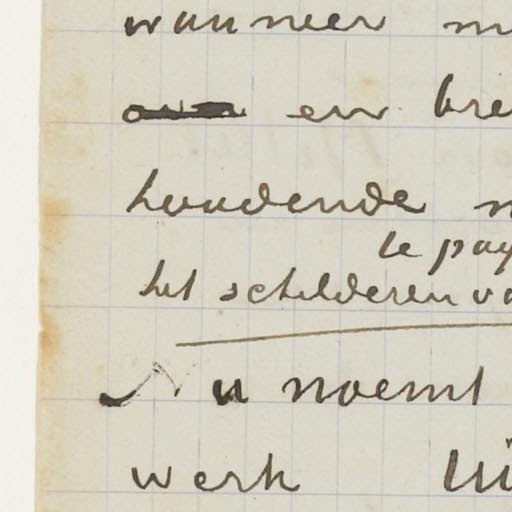 wanneer m
en bre
houdende n
le pay
het schilderen va
Nu noemt
werk